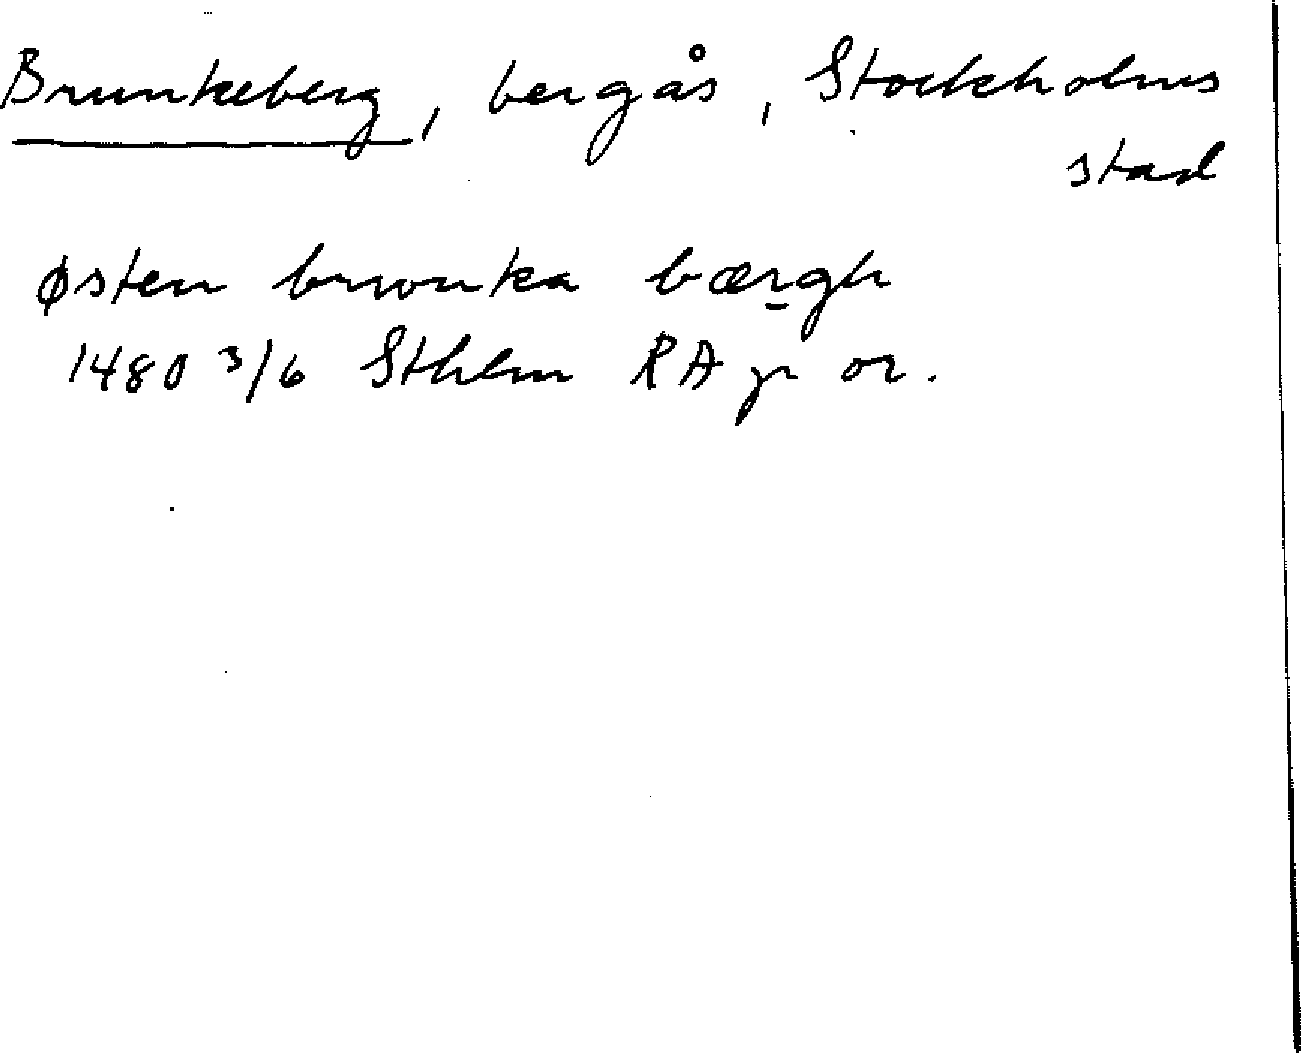 Brunkeberg, bergås, Stockholms
stad
østen brwnka bærgh
1480 3/6 Sthlm RA pr or.